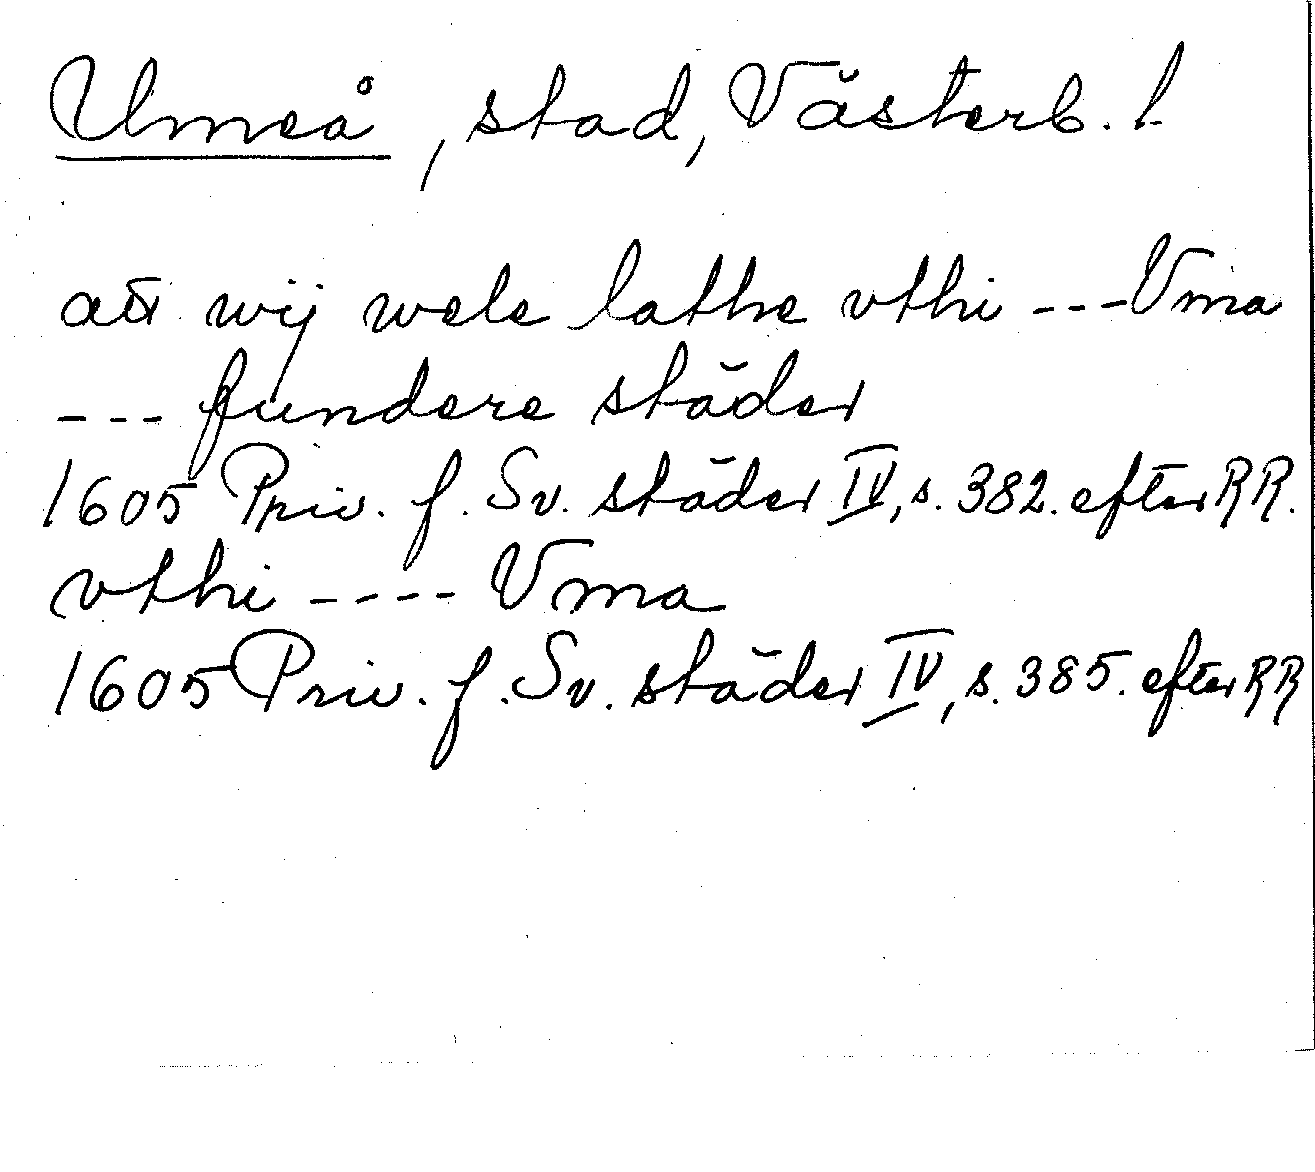 Umeå, stad, Västerb. l.
att wij wele lathe vthi --- Vma
--- fundere städer
1605 Priv. f. Sv. städer IV, s. 382. efter RR.
vthi ---- Vma
1605 Priv. f. Sv. städer IV, s. 385. efter RR